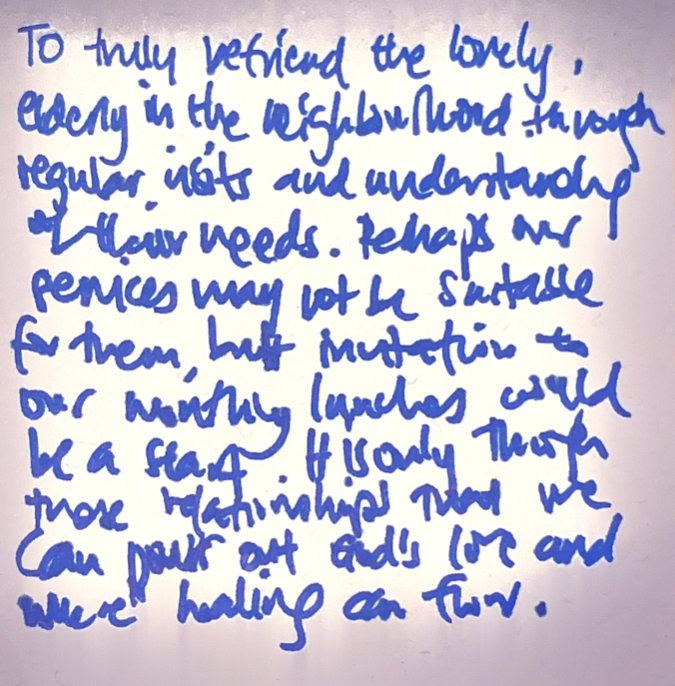 To truly befriend the lonely,
elderly in the neighbourhood through
regular visits and understanding
of their needs. Perhaps our
services may not be suitable
for them, but invitation to
our monthly lunches could
be a start. It is only through
those relationships that we
can pour out God's love and
where healing can flow.